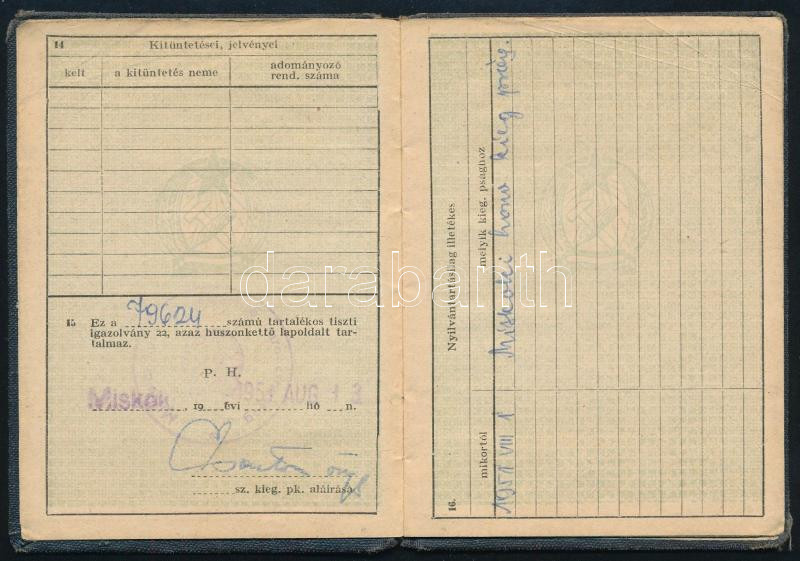 14 Kitüntetései, jelvényei
kelt a kitüntetés neme adományozó rend. száma
15 Ez a 79624 számú tartalékos tiszti
igazolvány 22, azaz huszonkettő lapoldalt tar-
talmaz.
P. H.
Miskolc 1951 AUG 13
, 19 évi hó n.
sz. kieg. pk. aláírása
16. Nyilvántartásilag illetékes
mikortól melyik kieg. psághoz
1951 VIII 1 Miskolci honv kieg pság.
darabanth